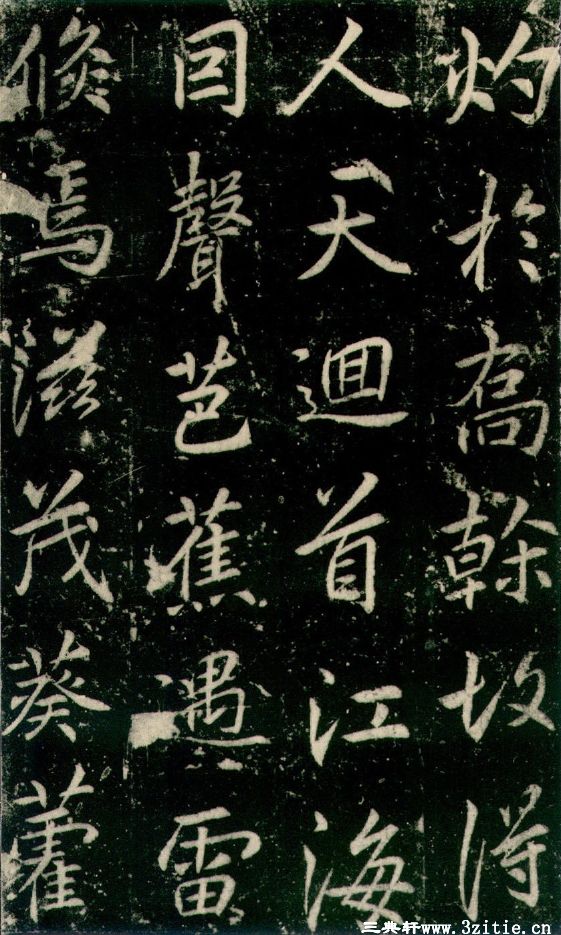 灼於高幹故得
人天迴首江海
囙聲芭蕉遇雷
倏焉滋茂葵藿
三典轩www.3zitie.cn